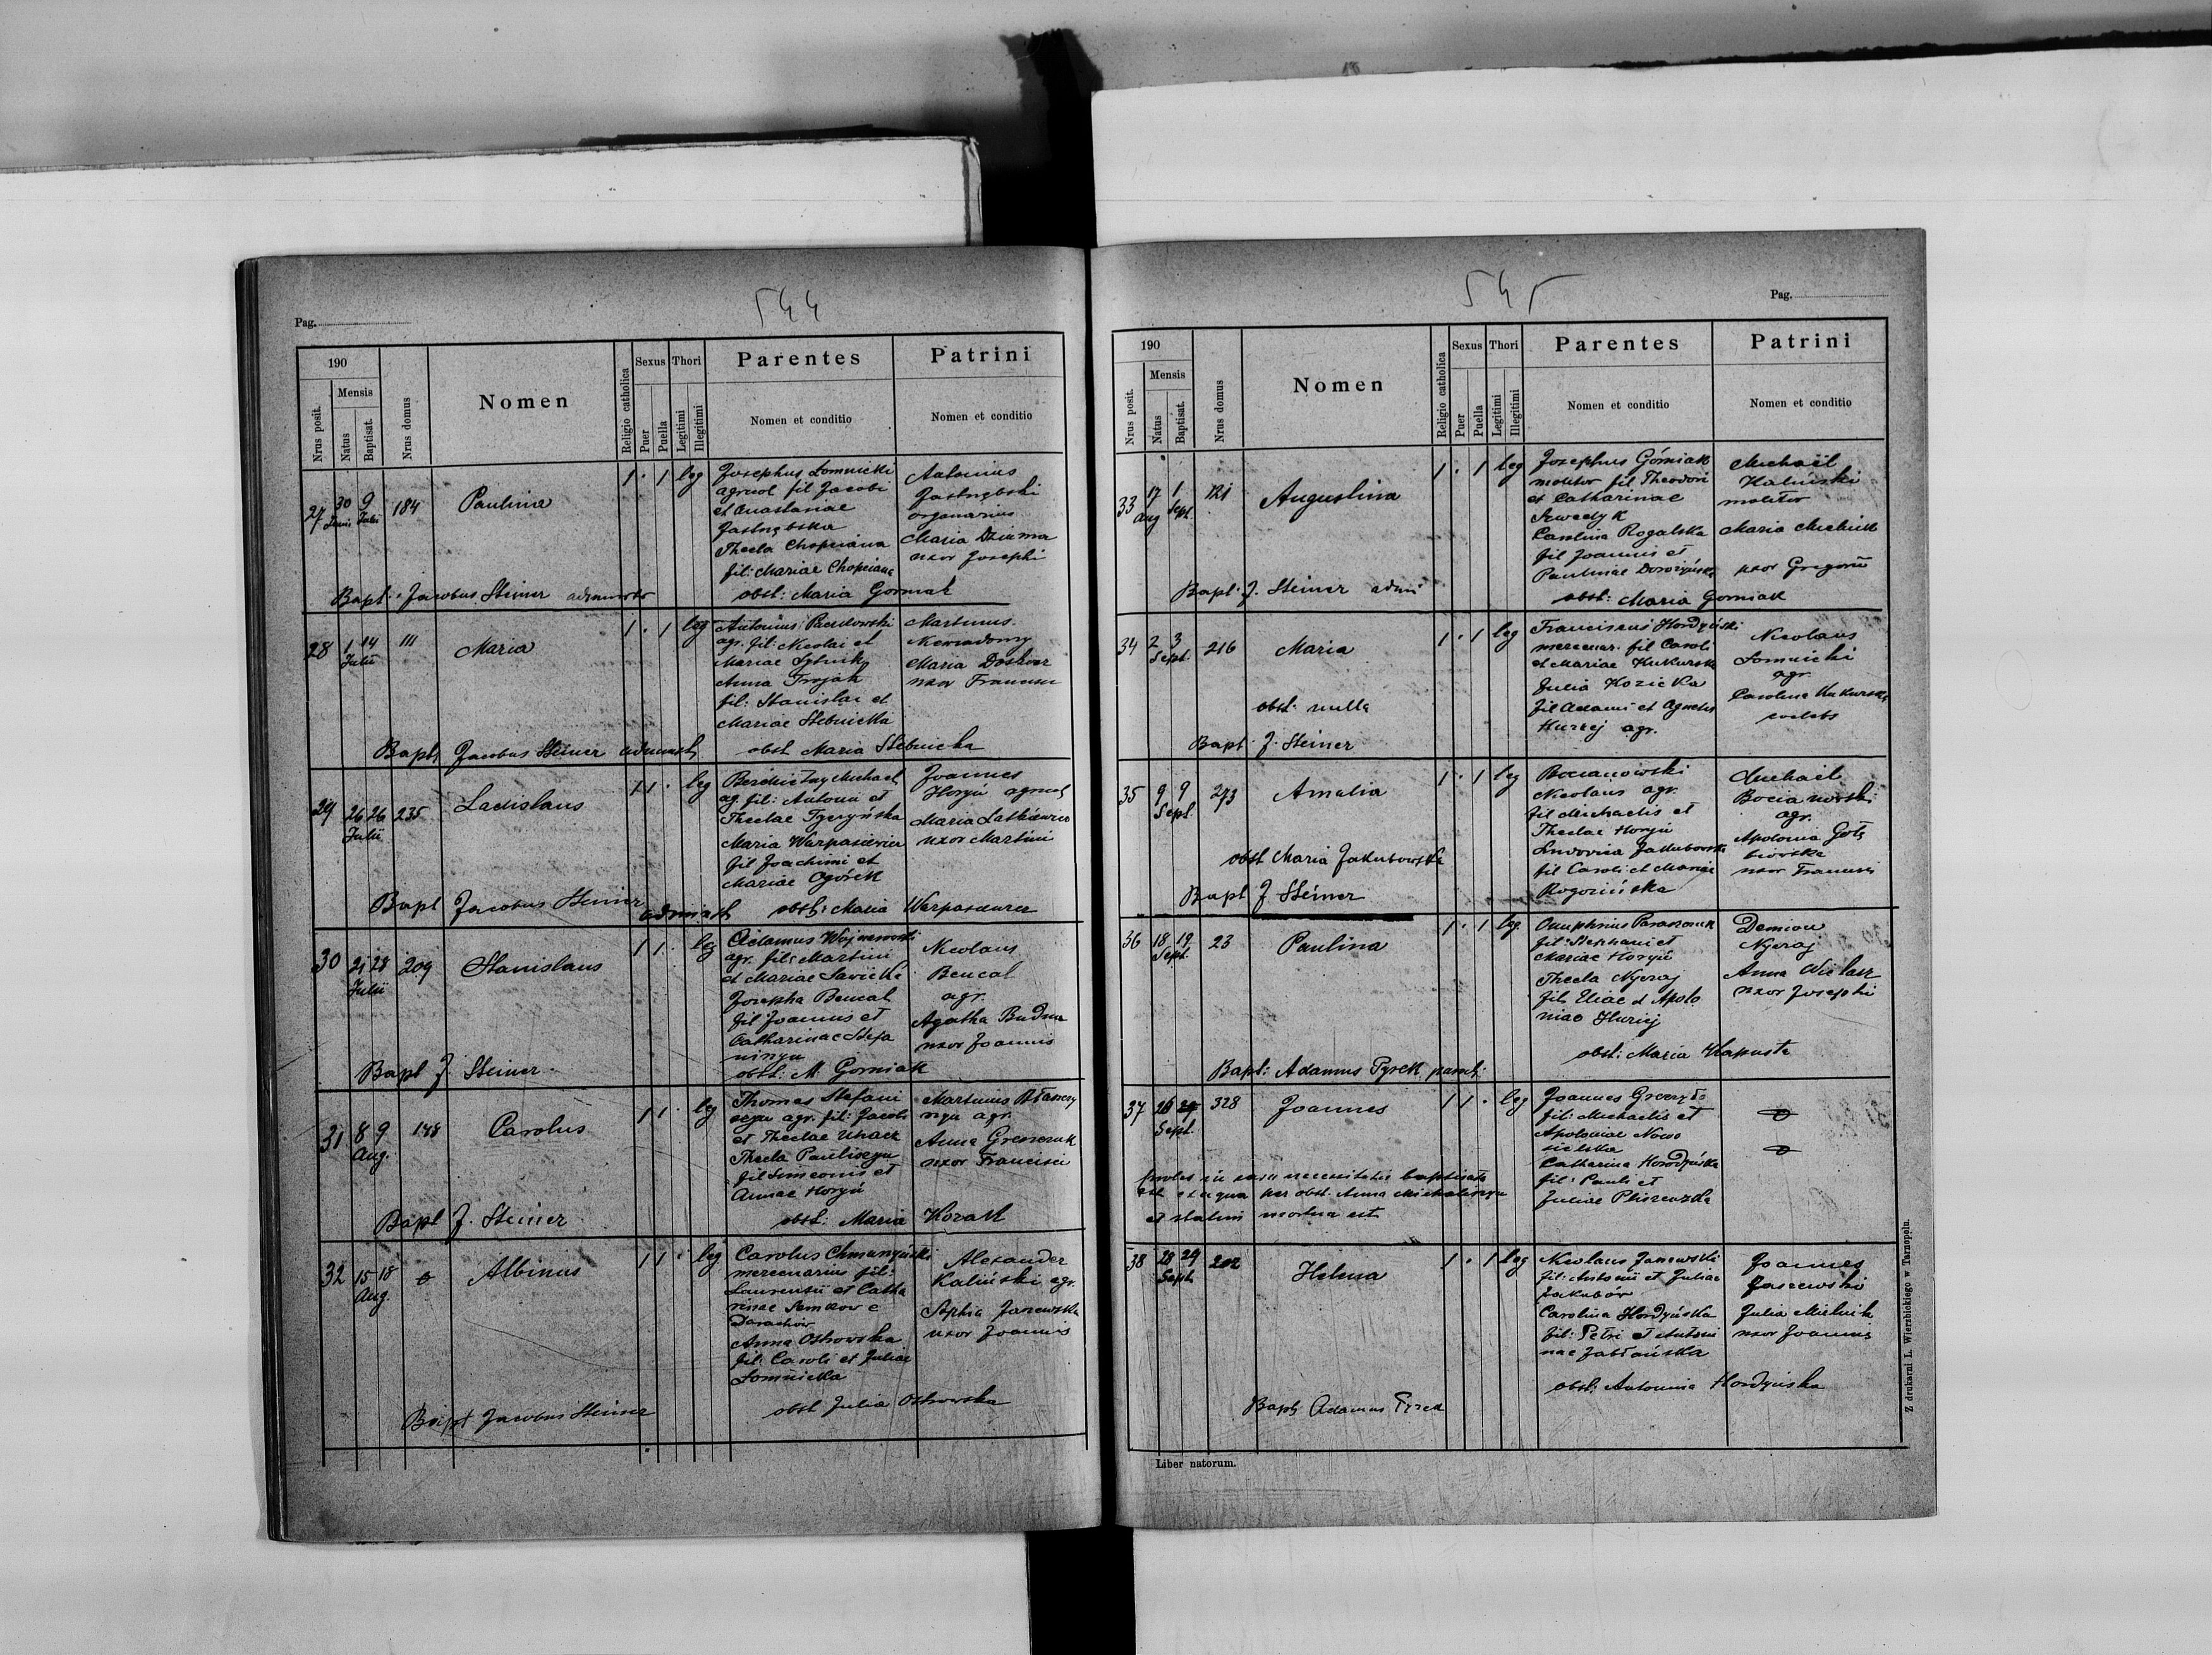 544
Pag.
190
Mensis
Nrus posit.
Natus
Baptisat.
Nrus domus
Nomen
Religio catholica
Sexus
Puer
Puella
Thori
Legitimi
Illegitimi
Parentes
Nomen et conditio
Patrini
Nomen et conditio
27
30 9
Junii Julii
184
Paulina
1 . 1 leg
Josephus Lomnicki
agricol fil Jacobi
et Anastasiae
Jastrzębska
Thecla Chopciana
fil: Mariae Chopciana
Antonius
Jastrzębski
organarius
Maria Dziuma
uxor Josephi
Bapt. Jacobus Steiner admstr
obst: Maria Gorniak
28
1 14
Julii
111
Maria
1 . 1 leg
agr. fil: Nicolai et
Anna Trojak
fil: Stanislai et
Mariae Stebnicka
Martinus
Newiadomy
Maria
uxor Francisci
Bapt Jacobus Steiner admnstr
obst Maria Stebnicka
29
26 26
Julii
235
Ladislaus
1 1 . leg
Michael
ag. fil: Antonii et
Theclae Tyczyńska
Maria Warpasiewicz
fil Joachimi et
Mariae Ogórek
Joannes
Horyń agricol
Maria Latkiewicz
uxor Martini
Bapt Jacobus Steiner
admnstr
obst: Maria Warpasiewicz
30
21 28
Julii
209
Stanislaus
1 1 . leg
Adamus
agr. fil: Martini
et Mariae Sawicka
Josepha Bencal
fil Joannis et
Catharinae Stefa
nisyn
obst: M. Gorniak
Nicolaus
Bencal
agr.
Agatha Budna
uxor Joannis
Bapt J. Steiner
31
8 9
Aug.
148
Carolus
1 1 . leg
Thomas Stefani
szyn agr. fil: Jacobi
et Theclae
Thecla Pauliszyn
fil Simeonis et
Annae Horyń
Martinus
agr.
Anna Greszczuk
uxor Francisci
Bapt J. Steiner
obst: Maria Kozak
32
15 18
Aug.
Albinus
1 1 . leg
Carolus
mercenarius fil:
Laurentii et Catha
rinae e
Darachów
Anna Ostrowska
fil: Caroli et Juliae
Lomnicka
Alexander
Kaliński agr.
Sophia Janewska
uxor Joannis
Bapt Jacobus Steiner
obst Julia Ostrowska
545
Pag.
190
Mensis
Nrus posit.
Natus
Baptisat.
Nrus domus
Nomen
Religio catholica
Sexus
Puer
Puella
Thori
Legitimi
Illegitimi
Parentes
Nomen et conditio
Patrini
Nomen et conditio
33
17 1
Aug Sept.
121
Augustina
1 . 1 leg
Josephus Górniak
molitor fil Theodori
et Catharinae
Szwedyk
Carolina Rogalska
fil Joannis et
Paulinae
Michaël
Kaliński
molitor
Maria Mielnik
uxor Gregorii
Bapt. J. Steiner admi
obst: Maria Gorniak
34
2 3
Sept.
216
Maria
1 . 1 leg
Franciscus Hordyński
mercenar. fil Caroli
et Mariae Kukurska
Julia Kozicka
fil Adami et Agnetis
Hurzej agr.
Nicolaus
Lomnicki
agr.
Carolina Kukurska
obst: nulla
Bapt J. Steiner
35
9 9
Sept.
273
Amalia
1 . 1 leg
Bocianowski
Nicolaus agr.
fil Michaelis et
Theclae Horyń
Ludovica Jakubowska
fil Caroli et Mariae
Rogozińska
Michael
Bocianowski
agr.
Apolonia Gołę
biowska
uxor Francisci
obst Maria Jakubowska
Bapt J Steiner
36
18 19
Sept.
23
Paulina
1 . 1 leg
Onuphrius
fil: Stephani et
Mariae Horyń
Thecla Nyczaj
fil: Eliae et Apolo
niae Hurzej
Demian
Nyczaj
Anna
uxor Josephi
obst: Maria Kapusta
Bapt: Adamus Pyrek paroch:
37
26 29
Sept.
328
Joannes
1 1 . leg
Joannes
fil: Michaelis et
Apoloniae Nowo
sielska
Catharina Horodyńska
fil: Pauli et
Juliae
proles in casu necessitatis baptisata
est et aqua per obst. Anna Michaliszyn
et statim mortua est
38
28 29
Sept.
202
Helena
1 . 1 leg
Nicolaus Janewski
fil: Antonii et Juliae
Jakubów
Carolina Hordyńska
fil: Petri et Antoni
nae Jabłońska
Joannes
Janewski
Julia Mielnik
uxor Joannis
obst: Antonina Hordyńska
Bapt Adamus Pyrek
Liber natorum.
Z drukarni L. Wierzbickiego w Tarnopolu.